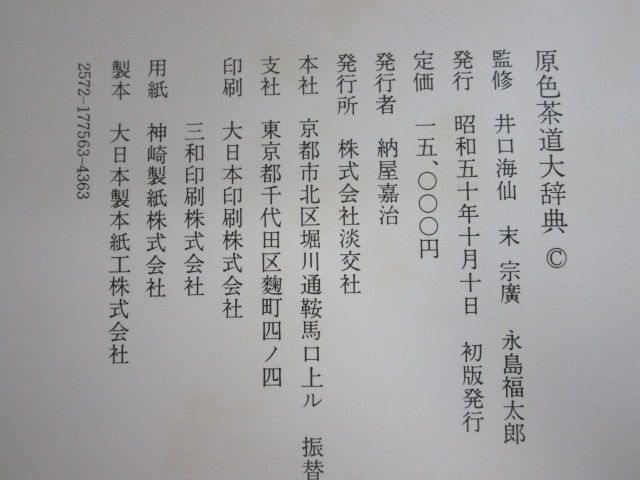 原色茶道大辞典 ©
監修 井口海仙 末 宗廣 永島福太郎
発行 昭和五十年十月十日 初版発行
定価 一五、〇〇〇円
発行者 納屋嘉治
発行所 株式会社淡交社
本社 京都市北区堀川通鞍馬口上ル 振替
支社 東京都千代田区麴町四ノ四
印刷 大日本印刷株式会社
三和印刷株式会社
用紙 神崎製紙株式会社
製本 大日本製本紙工株式会社
2572-177563-4363